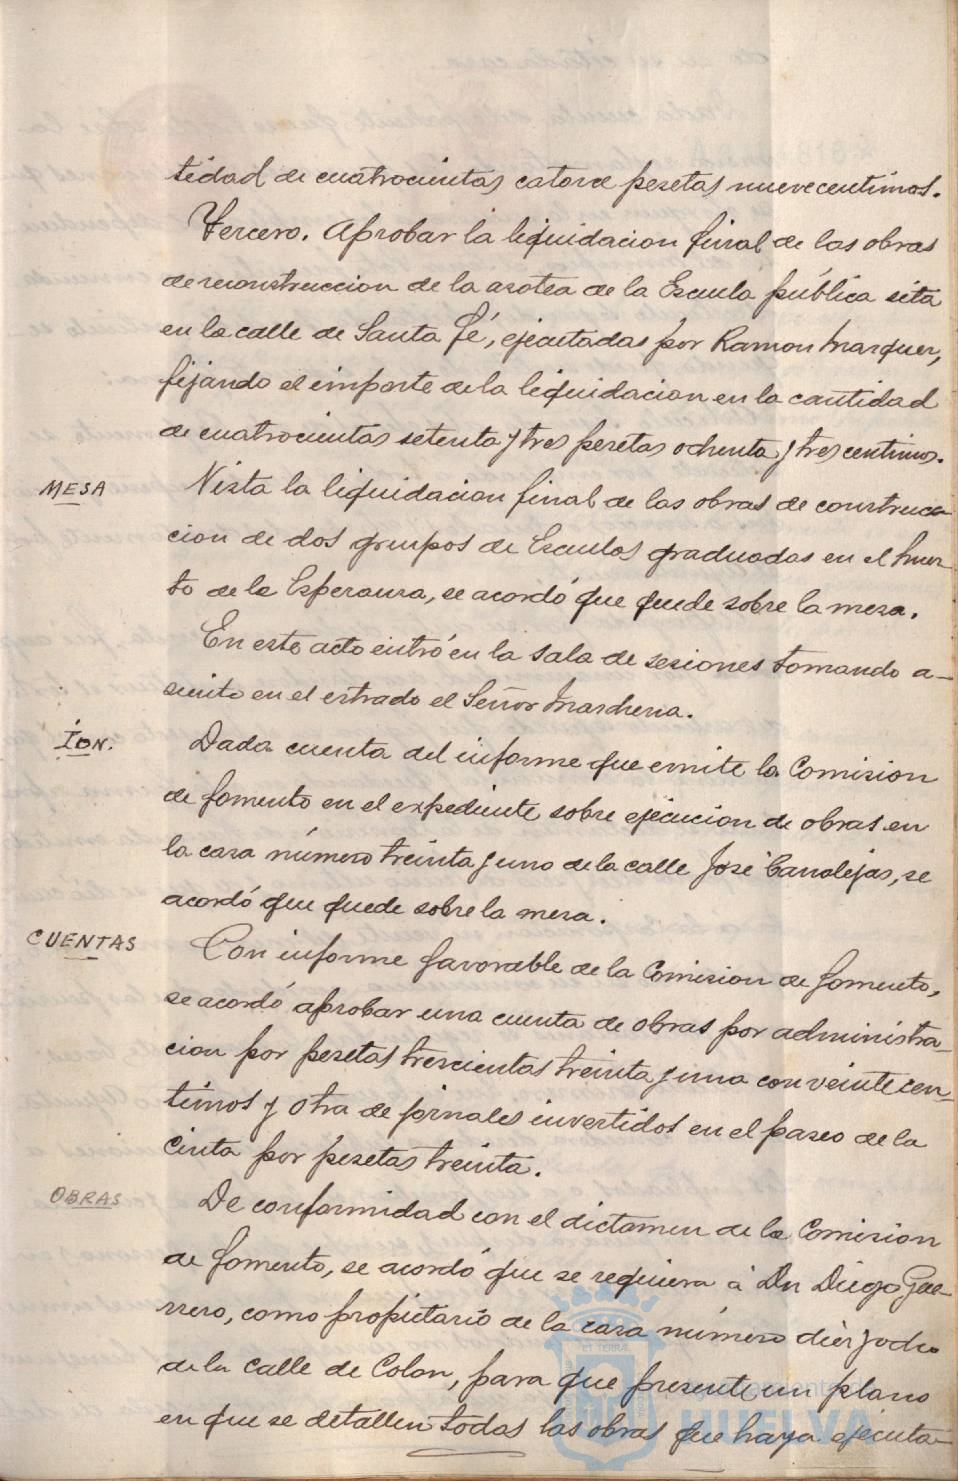 tidad de cuatrocientas catorce pesetas nueve centimos.
Tercero. Aprobar la liquidacion final de las obras
de reconstruccion de la azotea de la Escuela pública sita
en la calle de Santa Fé, ejecutadas por Ramon Marquez,
fijando el importe de la liquidacion en la cantidad
de cuatrocientas setenta y tres pesetas ochenta y tres centimos.
MESA
Vista la liquidacion final de las obras de construca
cion de dos grupos de Escuelas graduadas en el huer-
to de la Esperanza, se acordó que quede sobre la mesa.
En este acto entró en la sala de sesiones tomando a-
siento en el estrado el Señor Marchena.
ÍDN.
Dada cuenta del informe que emite la Comision
de fomento en el expediente sobre ejecucion de obras en
la casa número treinta y uno de la calle José Canalejas, se
acordó que quede sobre la mesa.
CUENTAS
Con informe favorable de la Comision de fomento,
se acordó aprobar una cuenta de obras por administra-
cion por pesetas trescientas treinta y una con veinte cen-
timos y otra de jornales invertidos en el paseo de la
Cinta por pesetas treinta.
OBRAS
De conformidad con el dictamen de la Comision
de fomento, se acordó que se requiera á Dn Diego Gue-
rrero, como propietario de la casa número diez y ocho
de la calle de Colon, para que presente un plano
en que se detallen todas las obras que haya ejecuta-
ET TERRÆ
Ayuntamiento de
HUELVA